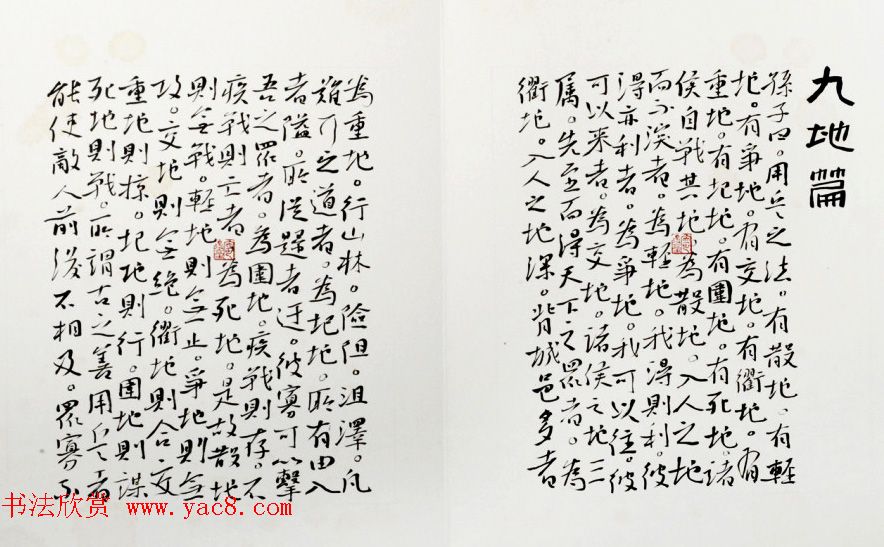 九地篇
孫子曰。用兵之法。有散地。有輕
地。有爭地。有交地。有衢地。有
重地。有圮地。有圍地。有死地。諸
侯自戰其地為散地。入人之地
而不深者。為輕地。我得則利。彼
得亦利者。為爭地。我可以往。彼
可以來者。為交地。諸侯之地三
属。先至而得天下之眾者。為
衢地。入人之地深。背城邑多者
為重地。行山林。險阻。沮澤。凡
難行之道者。為圮地。所有由入
者隘。所從歸者迂。彼寡可以擊
吾之眾者。為圍地。疾戰則存。不
疾戰則亡者為死地。是故散地
則無戰。輕地則無止。爭地則無
攻。交地則無絕。衢地則合交
重地則掠。圮地則行。圍地則謀
死地則戰。所謂古之善用兵者
能使敵人前後不相及。眾寡不
书法欣赏 www.yac8.com